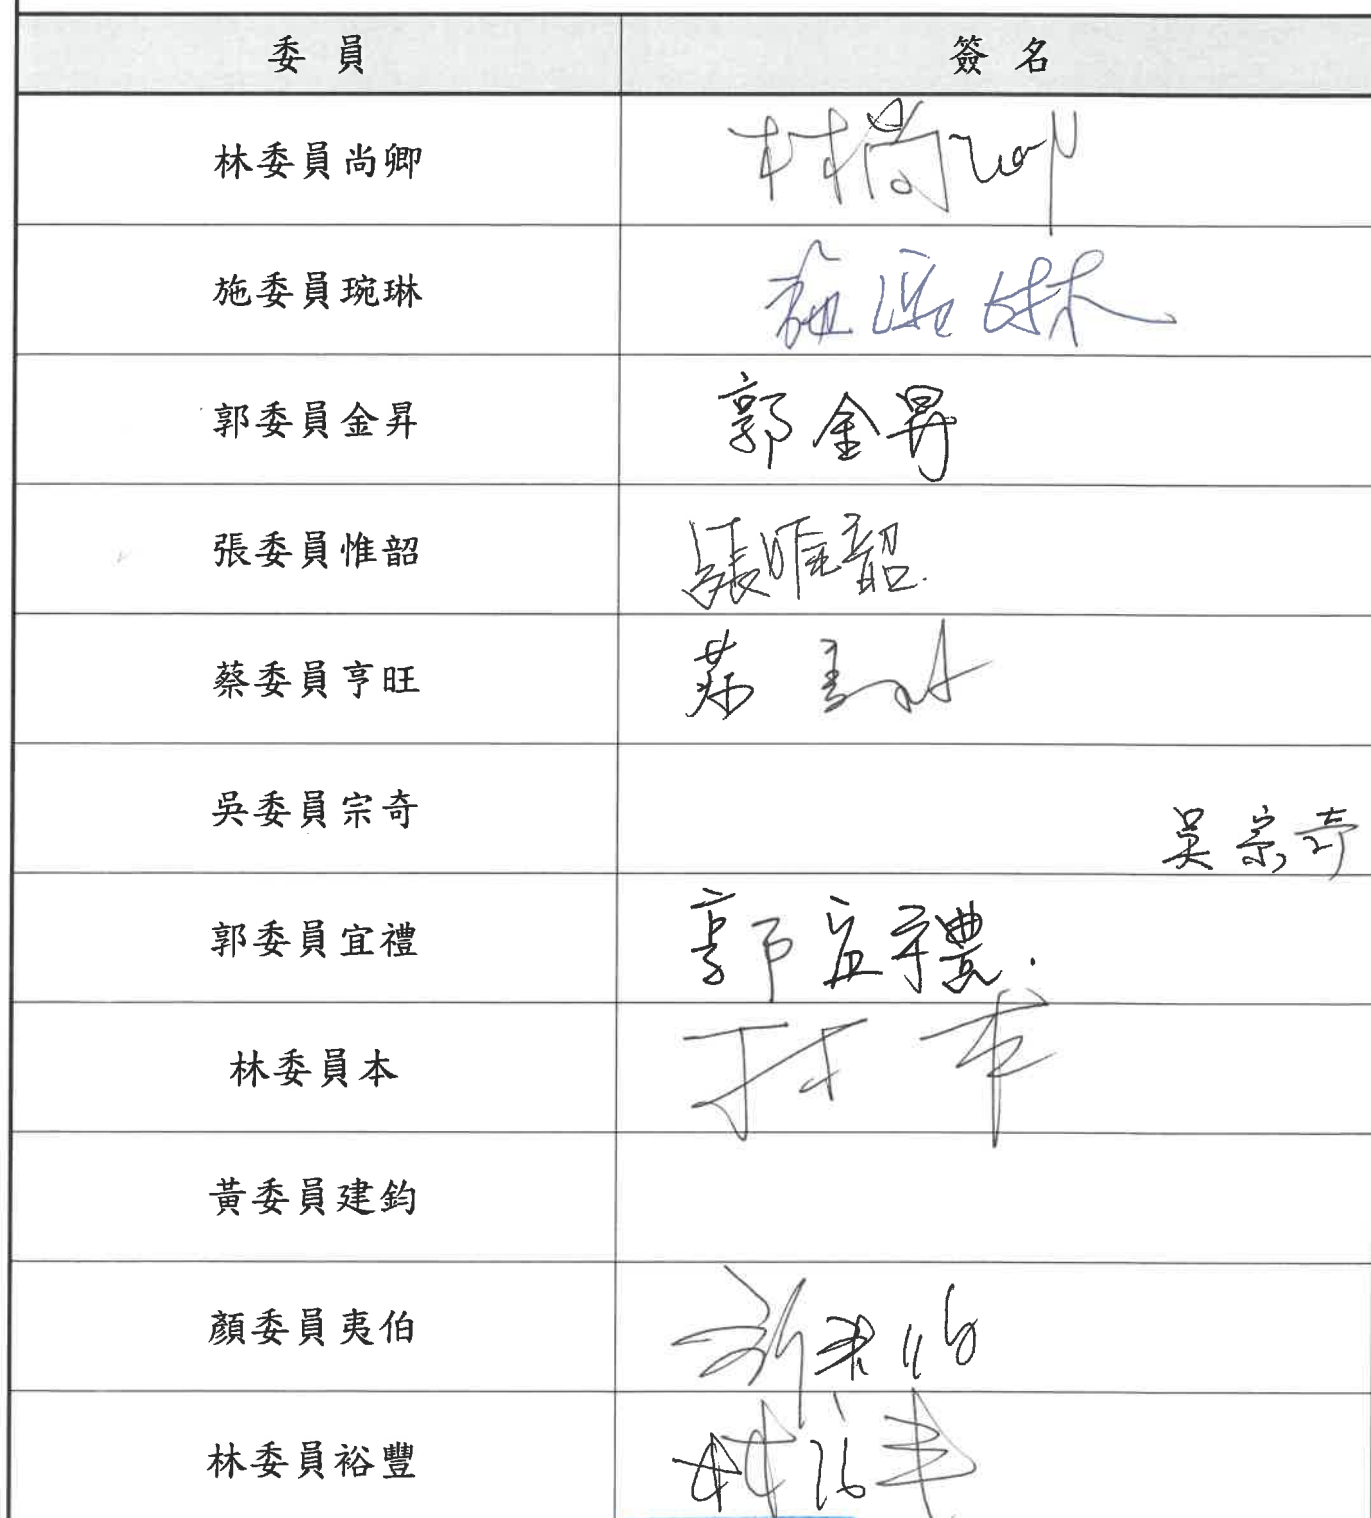 委員 簽名
林委員尚卿 林尚卿
施委員琬琳 施琬琳
郭委員金昇 郭金昇
張委員惟韶 張惟韶
蔡委員亨旺 蔡
吳委員宗奇 吳宗奇
郭委員宜禮 郭宜禮
林委員本 林本
黃委員建鈞
顏委員夷伯 顏夷伯
林委員裕豐 林裕丰